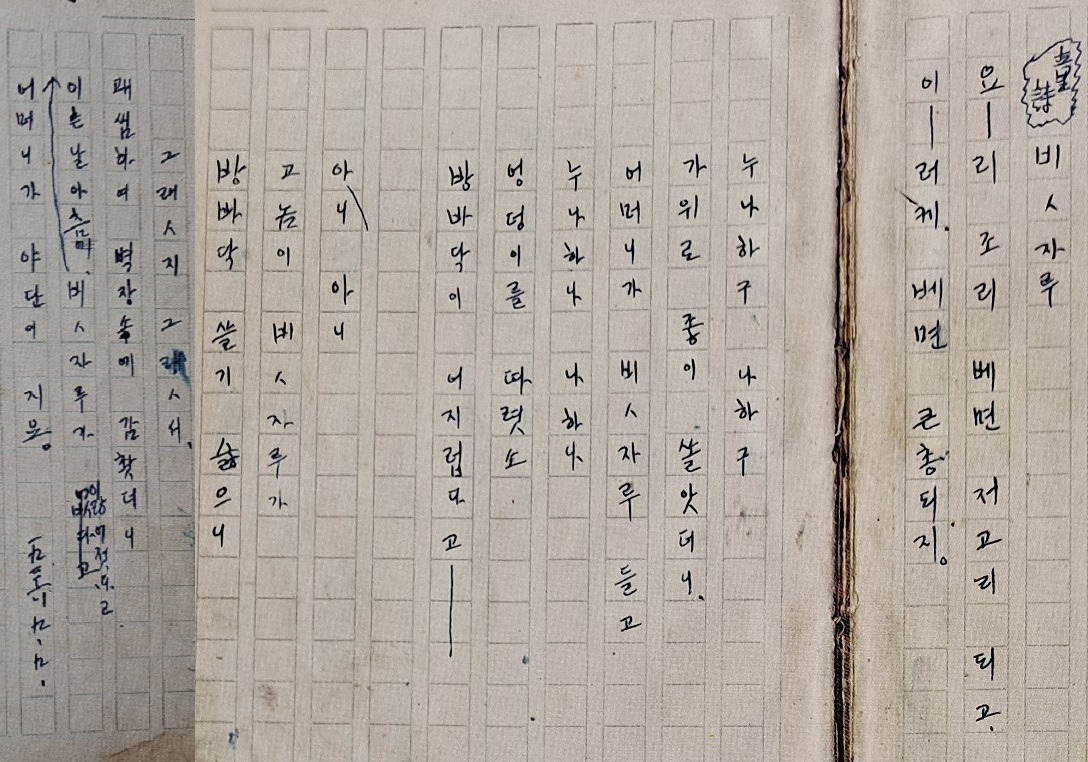 童詩 비ㅅ자루
요—리 조리 베면 저고리 되고.
이—러케. 베면 큰총되지。
누나하구 나하구
가위로 종이 쏠앗더니.
어머니가 비ㅅ자루 들고
누나하나 나하나
엉덩이를 따렷소.
방바닥이 어지럽다고——
아니 아니
고놈이 비ㅅ자루가
방바닥 쓸기 슳으니
그래ㅅ지 그래ㅅ서.
괘씸하여 벽장속에 감찻더니
이튼날아츰 비ㅅ자루가 업다고
어머니가 야단이 지요。
一九三六、九、九.